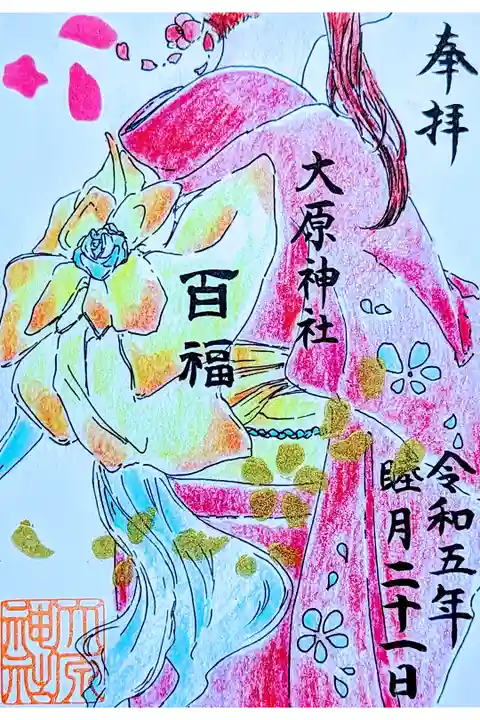 奉拝
大原神社
百福
令和五年
睦月二十一日
大原
神社